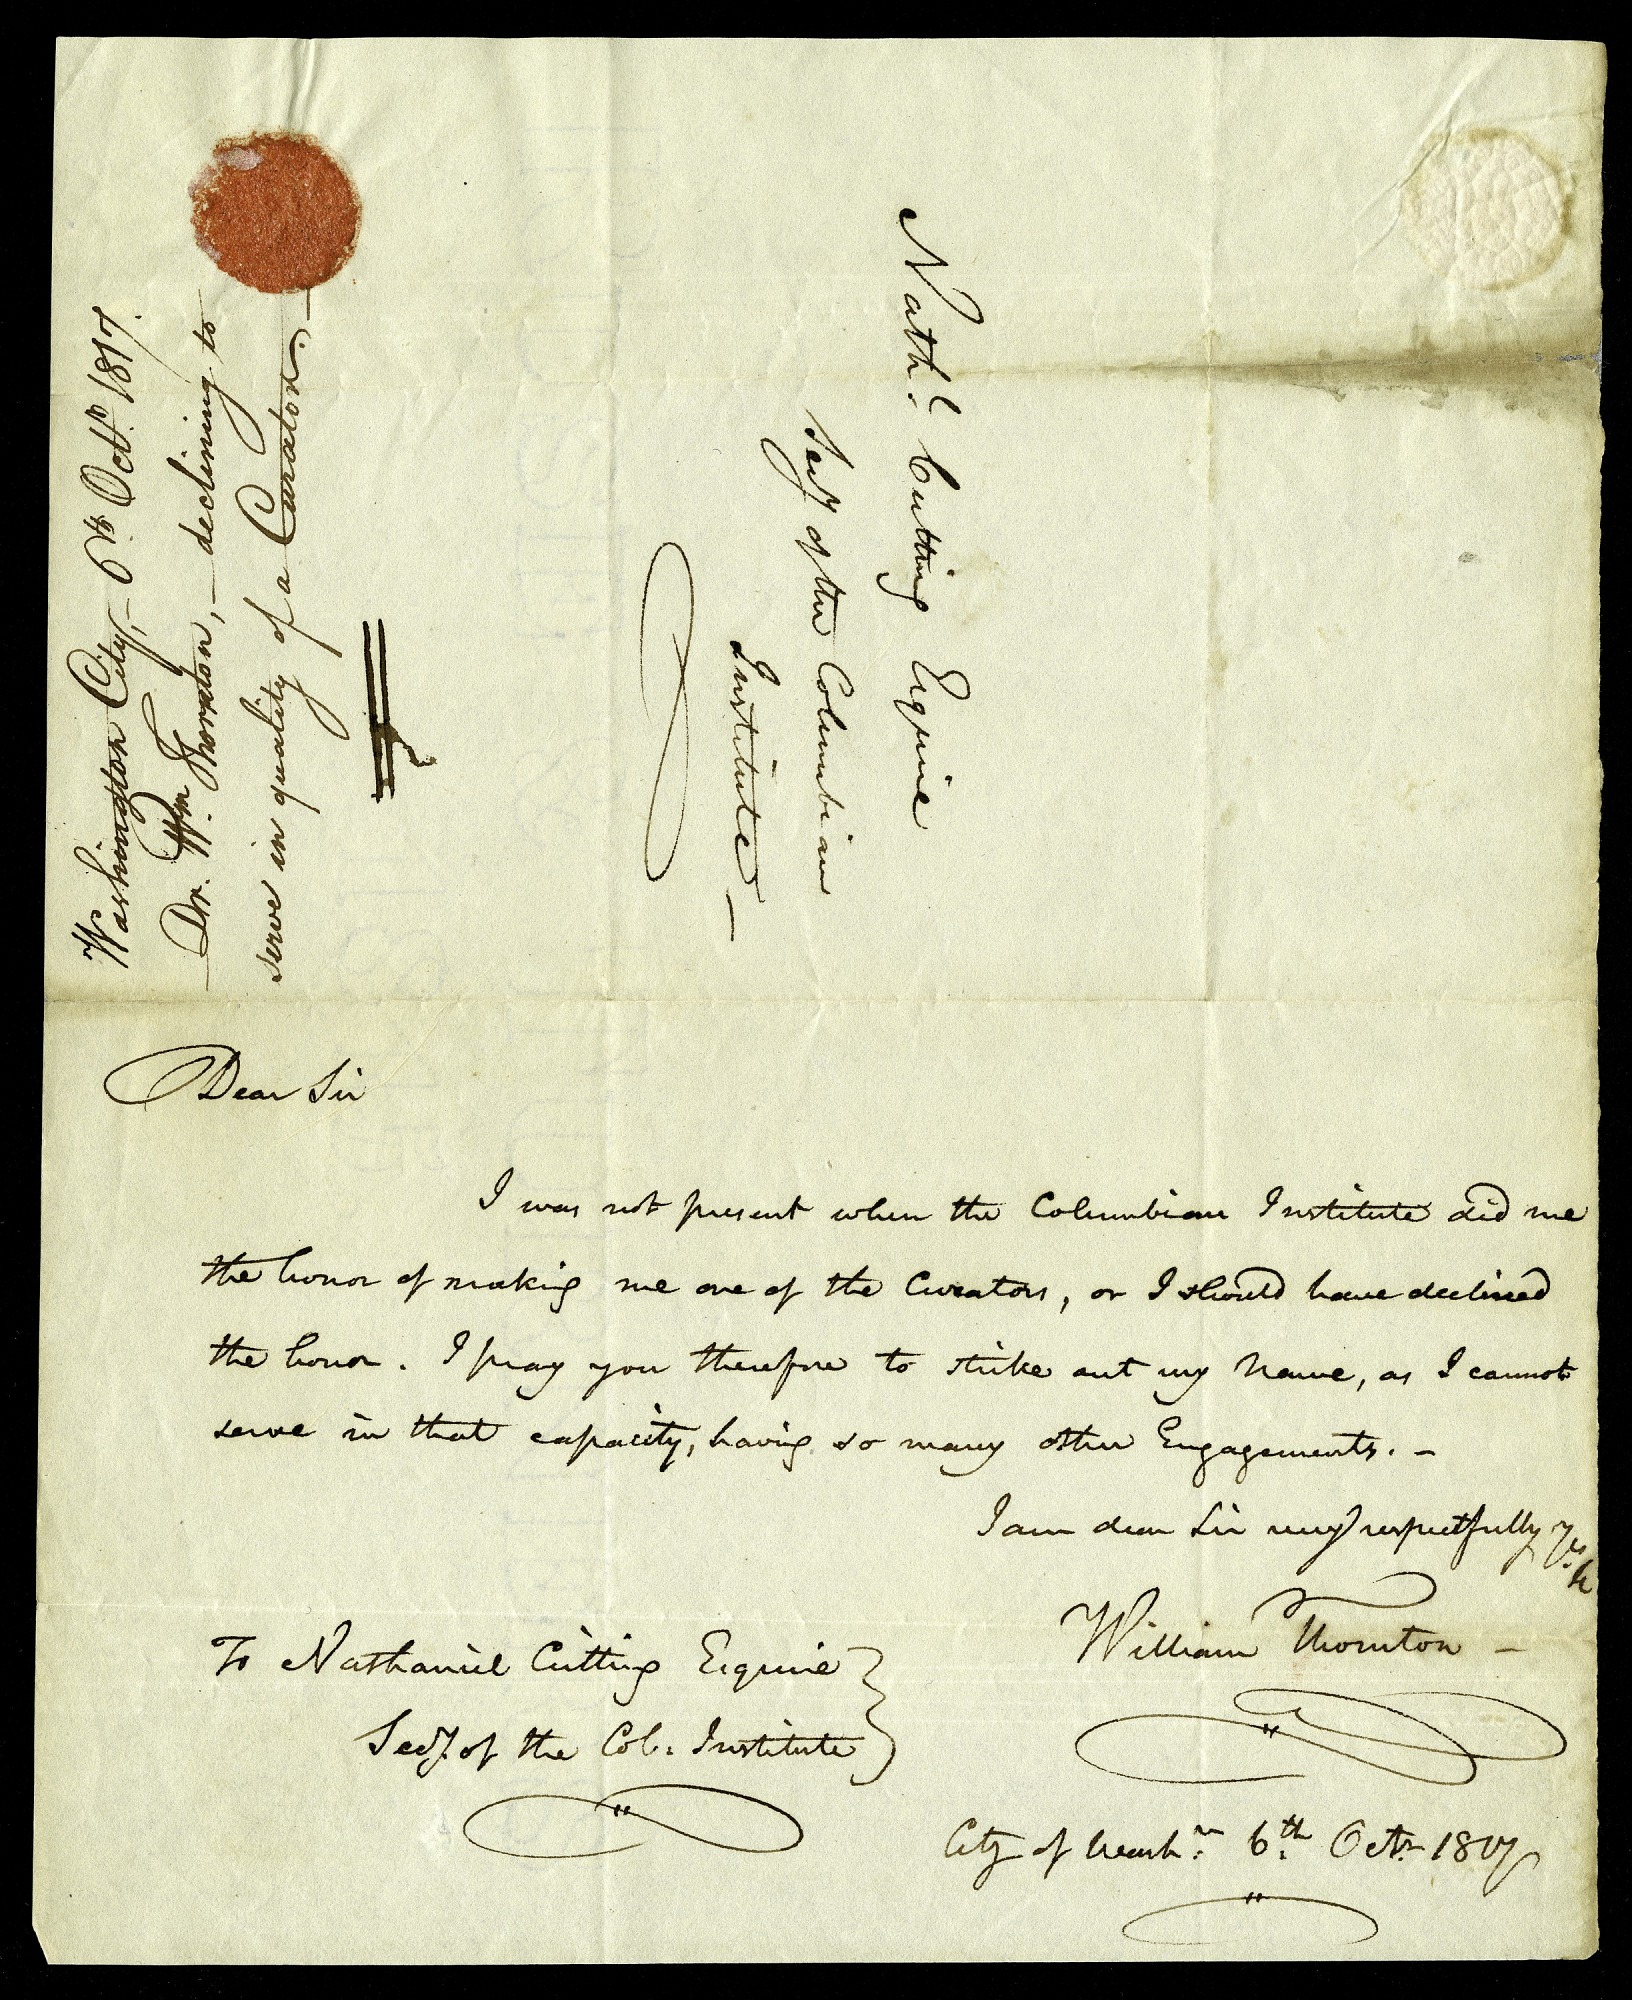 Washington City,– 6th Octr. 1817.
Dr. Wm. Thornton,– declining to
serve in quality of a Curator.–
Nathl. Cutting Esquire
Secy of the Columbian
Institute –
Dear Sir
I was not present when the Columbian Institute did me
the honor of making me one of the Curators, or I should have declined
the honor. I pray you therefore to strike out my Name, as I cannot
serve in that capacity, having so many other Engagements. –
I am dear Sir very respectfully Yrs. &c
William Thornton –
To Nathaniel Cutting Esquire
Secy. of the Col: Institute
City of Washn. 6th. Octr. 1817